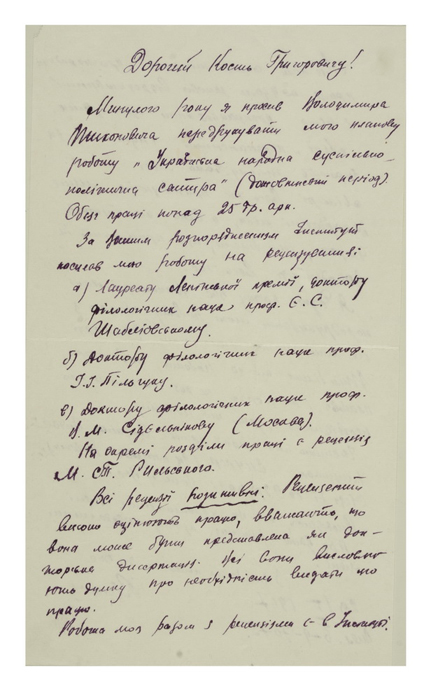 Дорогий Кость Григорович!
Минулого року я просив Володимира
Тихоновича передрукувати мою планову
роботу "Українська народна суспільно-
політична сатира" (дожовтневий період).
Обсяг праці понад 25 др. арк.
За Вашим розпорядженням Інститут
послав мою роботу на рецензування
а) Лауреату Ленінської премії, доктору
філологічних наук проф. Є. С.
Шабліовському.
б) Доктору філологічних наук проф.
І. І. Пільгуку.
в) Доктору філологічних наук проф.
В. М. Сідельнікову (Москва).
На окремі розділи праці є рецензія
М. Т. Рильського.
Всі рецензії позитивні. Рецензенти
високо оцінюють працю, вважають, що
вона може бути представлена як док-
торська дисертація. Всі вони вислов
ють думку про необхідність видати цю
працю.
Робота моя разом з рецензіями є в Інституті.